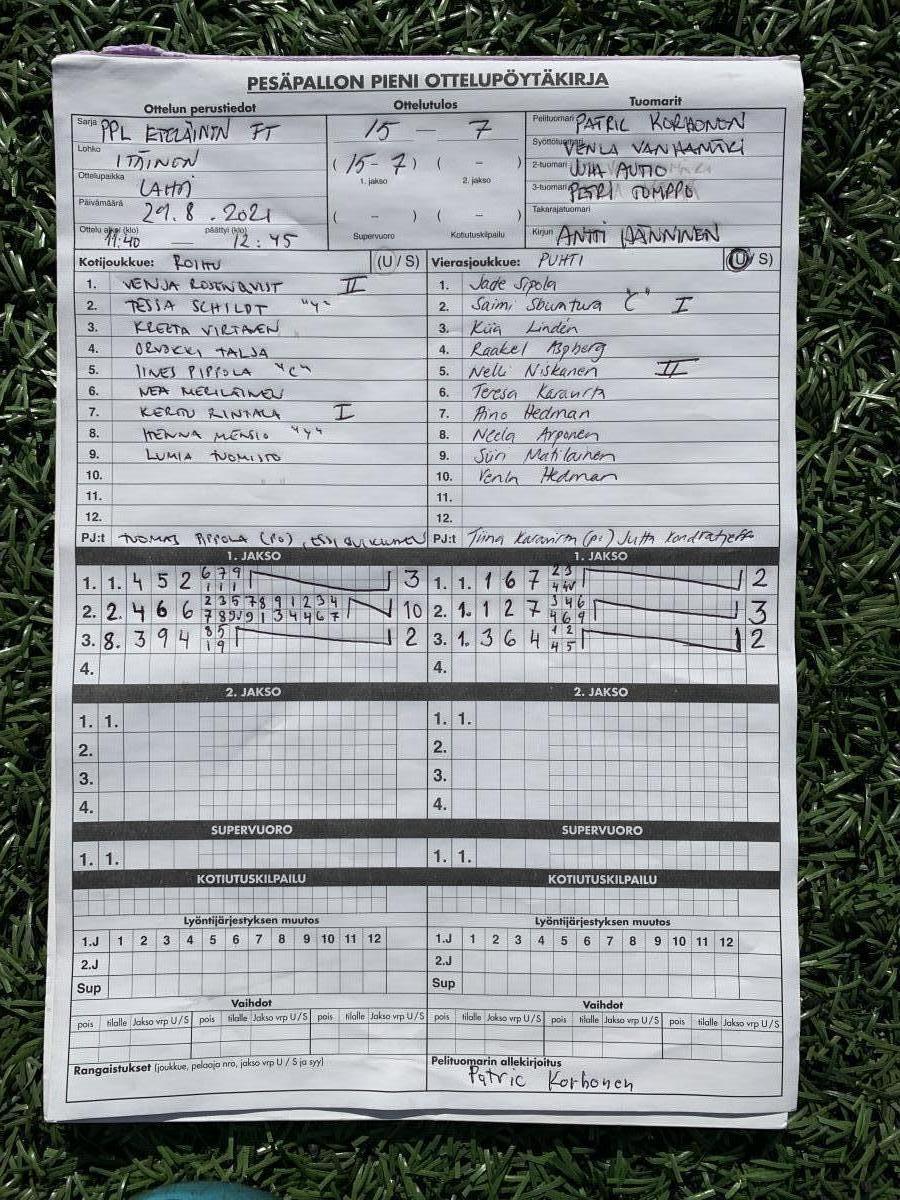 PESÄPALLON PIENI OTTELUPÖYTÄKIRJA
Ottelun perustiedot Ottelutulos Tuomarit
Sarja PPL ETELÄINEN FT
Lohko ITÄINEN
Ottelupaikka LAHTI
Päivämäärä 29.8.2021
Ottelu alkoi (klo) 11:40 — päättyi (klo) 12:45
15 – 7
(15-7) ( – )
1. jakso 2. jakso
( – ) ( – )
Supervuoro Kotiutuskilpailu
Pelituomari PATRIC KORHONEN
Syöttötuomari VENLA VANHAMÄKI
2-tuomari JUHA AUTIO
3-tuomari PETRI TOMPPO
Takarajatuomari
Kirjuri ANTTI HÄNNINEN
Kotijoukkue: ROIHU (U / S)
1. VENJA ROSENQVIST II
2. TESSA SCHILDT "Y"
3. KREETA VIRTANEN
4. ORVOKKI TALJA
5. IINES PIPPOLA "C"
6. NEA MERILÄINEN
7. KERTTU RINTALA I
8. HENNA MENSIO "Y"
9. LUMIA TUOMISTO
10.
11.
12.
PJ:t TUOMAS PIPPOLA (PJ),
Vierasjoukkue: PUHTI (U / S)
1. Jade Sipola
2. Saimi "C" I
3. Kiia Lindén
4. Raakel Aspberg
5. Nelli Niskanen II
6. Teresa Karavirta
7. Aino Hedman
8. Neela Arponen
9. Siiri Matilainen
10. Venla Hedman
11.
12.
PJ:t Tiina Karavirta (pj) Jutta Kondratjeff
1. JAKSO 1. JAKSO
1. 1. 4 5 2 6 7 9 3
1 1 1
2. 2. 4 6 6 2 3 5 7 8 9 1 2 3 4 10
3. 8. 3 9 4 8 5 2
1 9
4.
1. 1. 1 6 7 2 3 2
2. 1. 1 2 7 3 4 6 3
4 6 9
3. 1. 3 6 4 1 2 2
4 5
4.
2. JAKSO 2. JAKSO
1. 1. 1. 1.
2. 2.
3. 3.
4. 4.
SUPERVUORO SUPERVUORO
1. 1. 1. 1.
KOTIUTUSKILPAILU KOTIUTUSKILPAILU
Lyöntijärjestyksen muutos Lyöntijärjestyksen muutos
1.J 1 2 3 4 5 6 7 8 9 10 11 12 1.J 1 2 3 4 5 6 7 8 9 10 11 12
2.J 2.J
Sup Sup
Vaihdot Vaihdot
pois tilalle Jakso vrp U/S pois tilalle Jakso vrp U/S pois tilalle Jakso vrp U/S pois tilalle Jakso vrp U/S pois tilalle Jakso vrp U/S pois tilalle Jakso vrp U/S
Rangaistukset (joukkue, pelaaja nro, jakso vrp U / S ja syy)
Pelituomarin allekirjoitus
Patric Korhonen